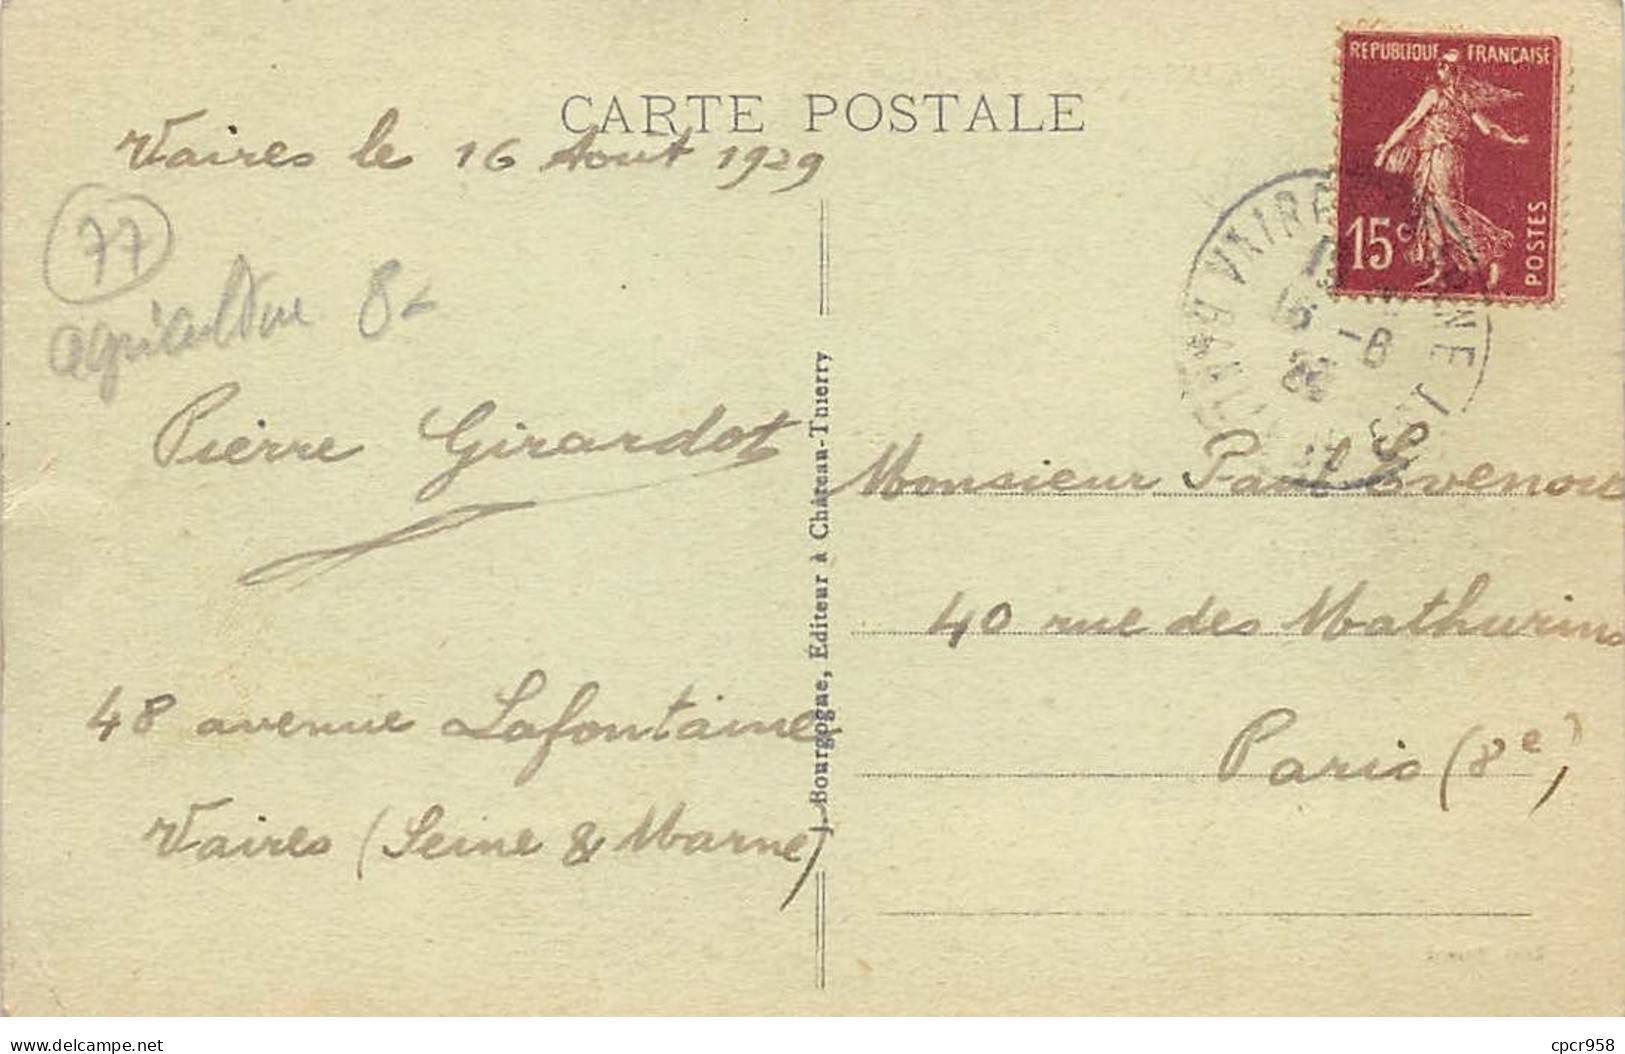 CARTE POSTALE
REPUBLIQUE FRANÇAISE
15c
POSTES
Vaires le 16 Aout 1929
77
agriculture 8-
Pierre Girardot
48 avenue Lafontaine
Vaires (Seine & Marne)
J. Bourgogne, Editeur à Château-Thierry
VAIRES
16 -8
Monsieur Paul Evenou
40 rue des Mathurins
Paris (8e)
delcampe.net
cpcr958